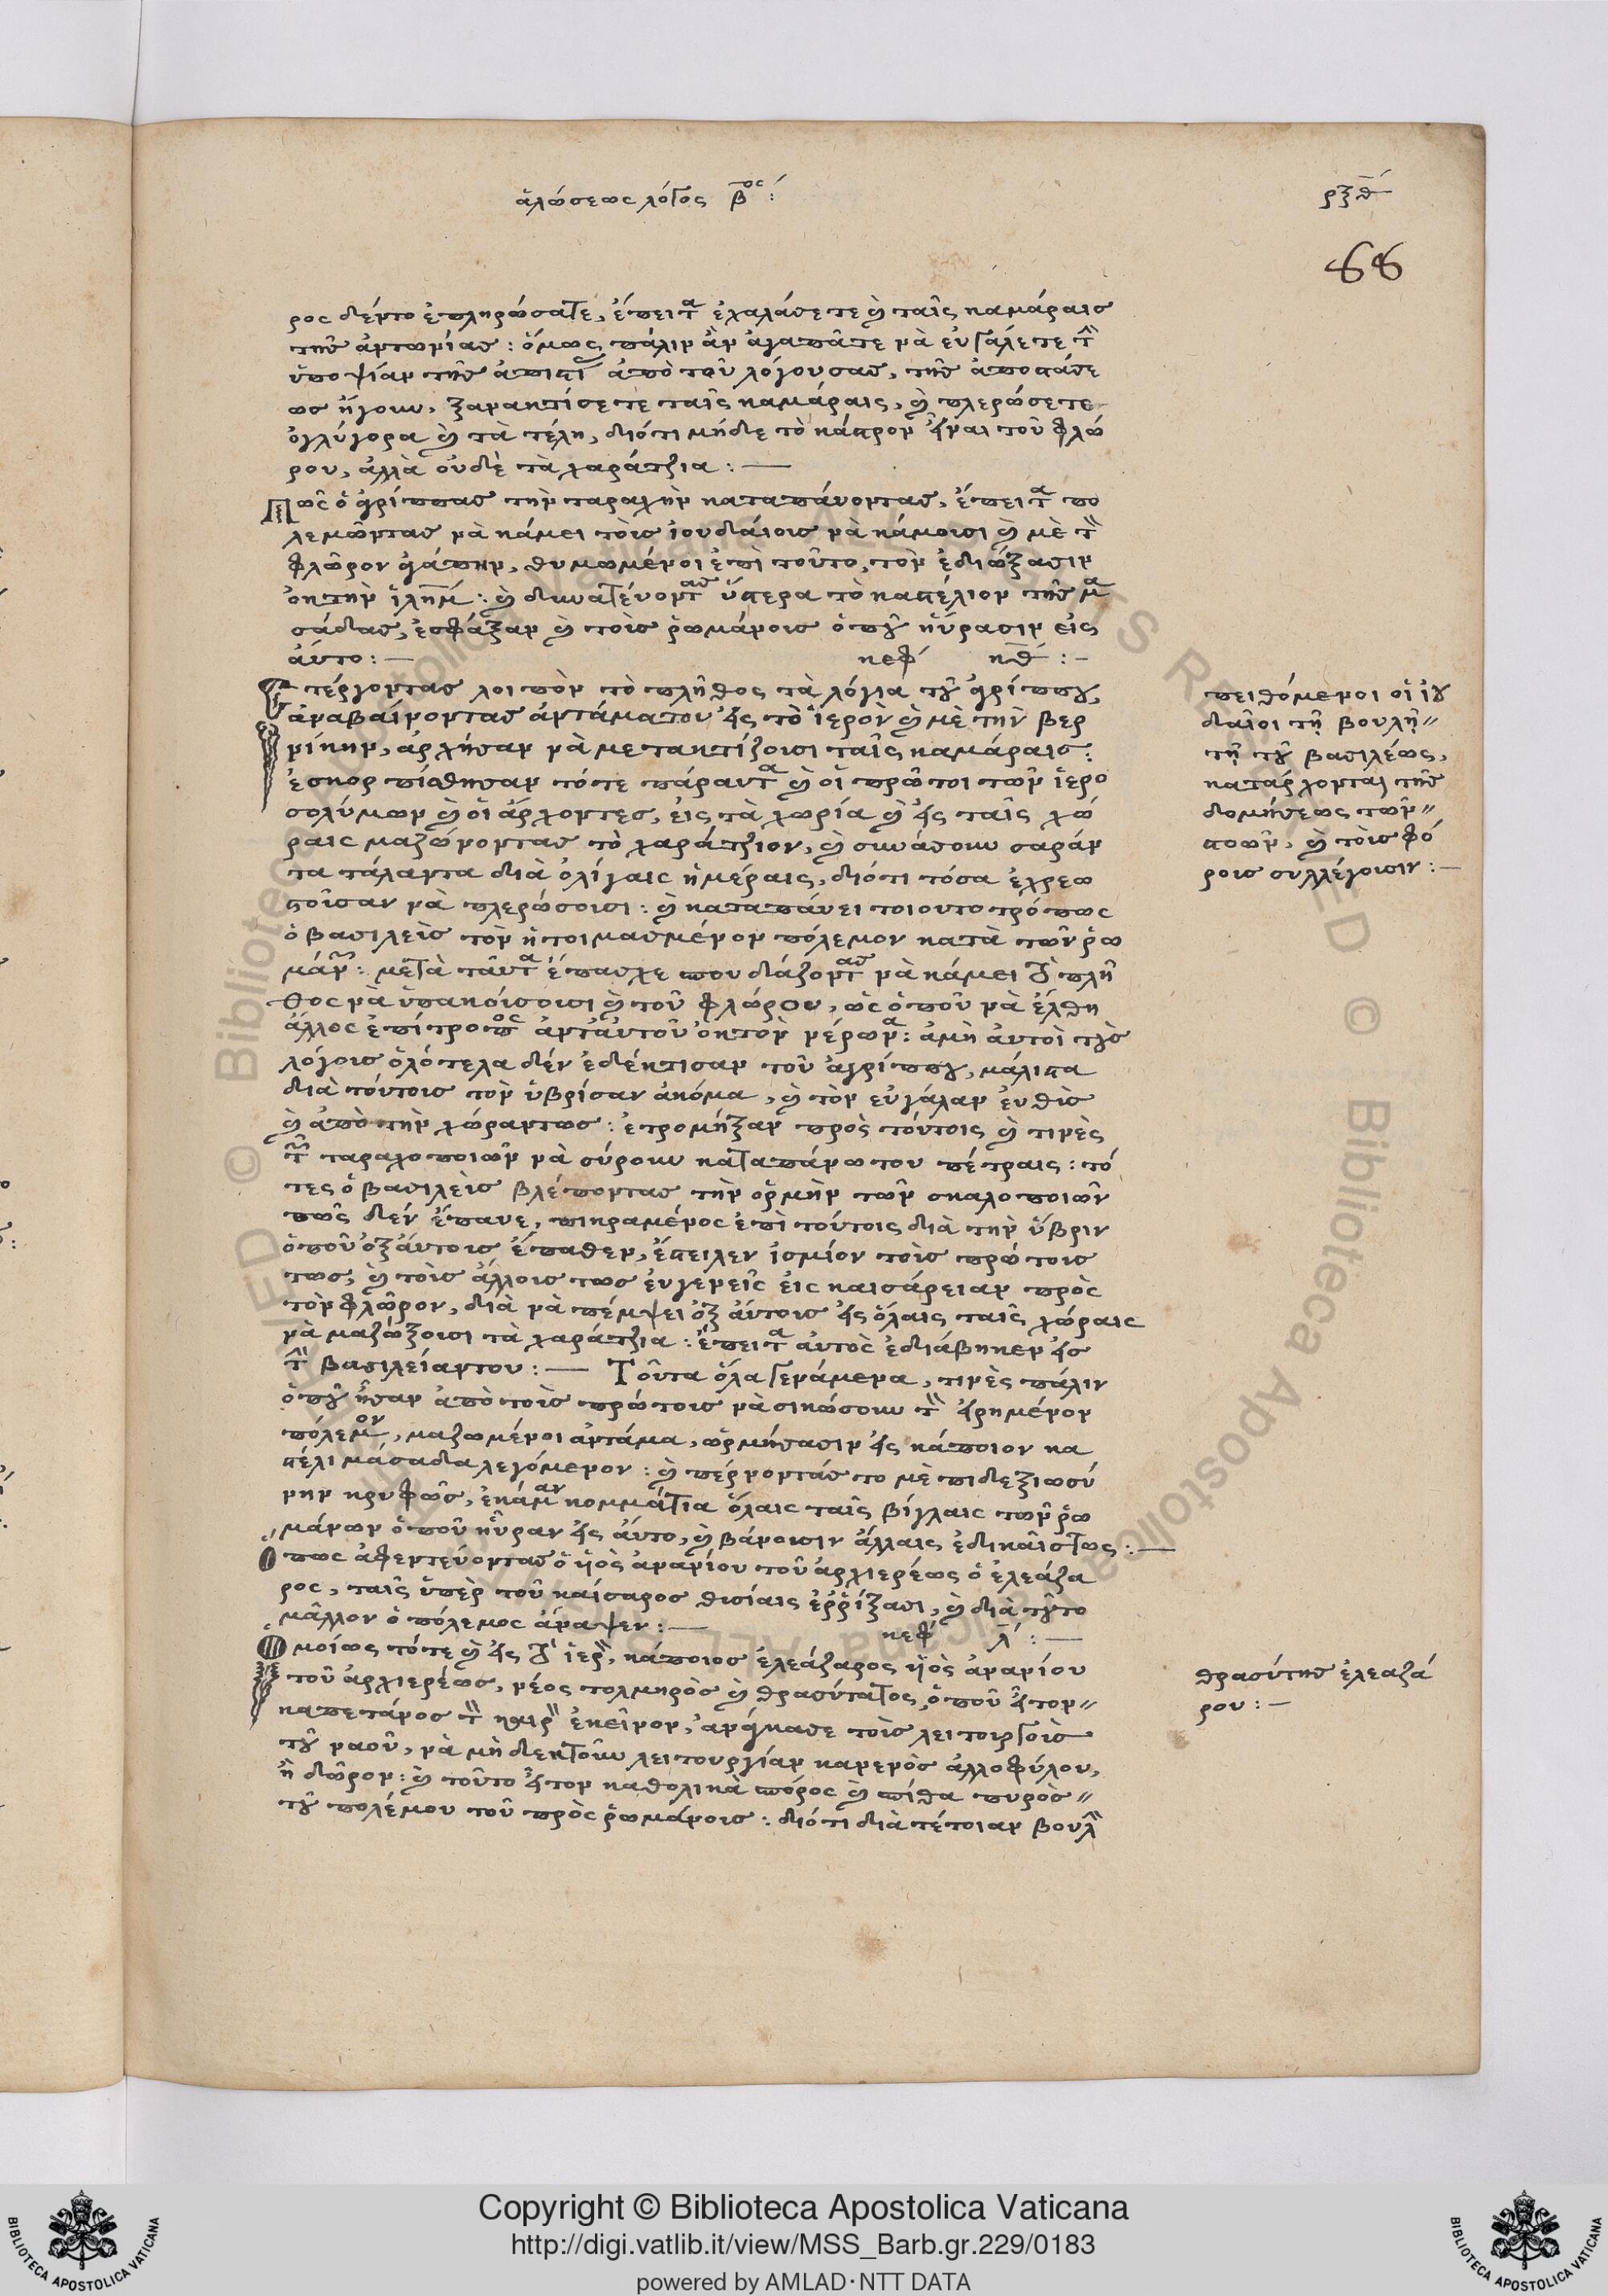 ἁλώσεως λόγος βος:
ρξθ
66
ρος δέντο ἐπληρώσατε, ἔπειτα ἐχαλάσετε καὶ ταῖς καμάραις
τῆς ἀντωνίας: ὅμως πάλιν ἂν ἀγαπᾶτε νὰ εὐγάλετε τὴν
ὑποψίαν τῆς ἀπιστίας ἀπὸ τοῦ λόγουσας, τῆς ἀποστάσε
ως ἤγουν, ξανακτίσετε ταῖς καμάραις, καὶ πλερώσετε
ὀγλύγορα καὶ τὰ τέλη, διότι μήδε τὸ κάστρον εἶναι τοῦ φλώ
ρου, ἀλλὰ οὐδὲ τὰ χαράτζια: —
Πῶς ὁ ἀγρίππας τὴν ταραχὴν καταπάνοντας, ἔπειτα πο
λεμῶντας νὰ κάμει τοὺς ἰουδαίοις νὰ κάμουσι καὶ μὲ τὸν
φλῶρον ἀγάπην, θυμωμένοι ἐπὶ τοῦτο, τὸν ἐδιώξασιν
ὀκτὴν ἱλημ: καὶ δυναστεύοντας ὕστερα τὸ καστέλιον τῆς μα
σάδας, ἐσφάξαν καὶ τοὺς ῥωμάνοις ὁποῦ ηὕρασιν εἰς
αὐτο: — κεφ κθ: —
Στέργοντας λοιπὸν τὸ πλῆθος τὰ λόγια τοῦ ἀγρίππου,
ἀναβαίνοντας ἀντάματου εἰς τὸ ἱερὸν καὶ μὲ τὴν βερ
νίκην, ἀρχήσαν νὰ μετακτίζουσι ταῖς καμάραις:
ἐσκορπίσθησαν τότε πάραυτα καὶ οἱ πρῶτοι τῶν ἱερο
σολύμων καὶ οἱ ἄρχοντες, εἰς τὰ χωρία καὶ εἰς ταῖς χώ
ραις μαζώνοντας τὸ χαράτζιον, καὶ συνάσουν σαράν
τα τάλαντα διὰ ὀλίγαις ἡμέραις, διότι τόσα ἐχρεω
στοῦσαν νὰ πλερώσουσι: καὶ καταπάνει τοιουτοτρόπως
ὁ βασιλεὺς τὸν ἡτοιμασμένον πόλεμον κατὰ τῶν ῥω
μάνων: μετὰ ταῦτα ἔπασχε σπουδάζοντας νὰ κάμει τὸ πλῆ
θος νὰ ὑπακούσουσι καὶ τοῦ φλώρου, ὡς ὁποῦ νὰ ἔλθη
ἄλλος ἐπίτροπος ἀντ᾽ αὐτοῦ ὀκτὸν νέρωνα: ἀμὴ αὐτοὶ τοὺς
λόγοις ὁλότελα δέν ἐδέκτισαν τοῦ ἀγρίππου, μάλιστα
διὰ τούτοις τὸν ὑβρίσαν ἀκόμα, καὶ τὸν εὐγάλαν εὐθὺς
καὶ ἀπὸ τὴν χώραντως: ἐτρομήξαν πρὸς τούτοις καὶ τινὲς
τῶν ταραχοποιῶν νὰ σύρουν κατὰπάνωτου πέτραις: τό
τες ὁ βασιλεὺς βλέποντας τὴν ὁρμὴν τῶν σκαλοποιῶν
πῶς δεν ἔπανε, πικραμένος ἐπὶ τούτοις διὰ τὴν ὕβριν
ὁποῦ ὀξ᾽ αὐτοις ἔπαθεν, ἔστειλεν ἰσμίον τοὺς πρώτοις
τως, καὶ τοὺς ἄλλοις τως εὐγενεῖς εἰς καισάρειαν πρὸς
τὸν φλῶρον, διὰ νὰ πέμψει ὀξ᾽ αὐτοις εἰς ὅλαις ταῖς χώραις
νὰ μαζώξουσι τὰ χαράτζια: ἔπειτα αὐτὸς ἐδιάβηκεν εἰς
τὴν βασιλείαντου: — Τοῦτα ὅλα γενάμενα, τινὲς πάλιν
ὁποῦ ἦσαν ἀπὸ τοὺς πρώτοις νὰ σικώσουν τὸν εἰρημένον
πόλεμον, μαζωμένοι ἀντάμα, ὡρμήσασιν εἰς κάποιον κα
στέλι μάσαδα λεγόμενον: καὶ πέρνοντάς το μὲ πιδεξιωσύ
νην κρυφῶς, ἐκάμαν κομμάτια ὅλαις ταῖς βίγλαις τῶν ῥω
μάνων ὁποῦ ηὗραν εἰς αὐτο, καὶ βάνουσιν ἄλλαις ἐδικαῖςτως: —
Ὅπως ἀφεντεύοντας ὁ ὑιὸς ἀνανίου τοῦ ἀρχιερέως ὁ ἐλεάζα
ρος, ταῖς ὑπὲρ τοῦ καίσαρος θυσίαις ἐῤῥίξασι, καὶ διὰ τοῦτο
μᾶλλον ὁ πόλεμος ἄναψεν: — κεφ λ: —
Ὁμοίως τότε καὶ εἰς τὸ ἱερὸν, κάποιος ἐλεάζαρος ὑιὸς ἀνανίου
τοῦ ἀρχιερέως, νέος τολμηρὸς καὶ θρασύτατος, ὁποῦ ἦτον
καπετάνος τὸν καιρὸν ἐκεῖνον, ἀνάγκασε τοὺς λειτουργοὺς
τοῦ ναοῦ, νὰ μὴ δεκτοῦν λειτουργίαν κανενὸς ἀλλοφύλου,
ἢ δῶρον: καὶ τοῦτο ἦτον καθολικὰ σπόρος καὶ σπίθα πυρὸς
τοῦ πολέμου τοῦ πρὸς ῥωμάνοις: διότι διὰ τέτοιαν βουλὴν
πειθόμενοι οἱ ἰου
δαῖοι τῇ βουλῇ
τῇ τοῦ βασιλέως,
κατάρχονται τῆς
δομήσεως τῶν
στοῶν, καὶ τοὺς φό
ροις συλλέγουσιν: —
θρασύτης ἐλεαζά
ρου: —
Copyright © Biblioteca Apostolica Vaticana
http://digi.vatlib.it/view/MSS_Barb.gr.229/0183
powered by AMLAD·NTT DATA